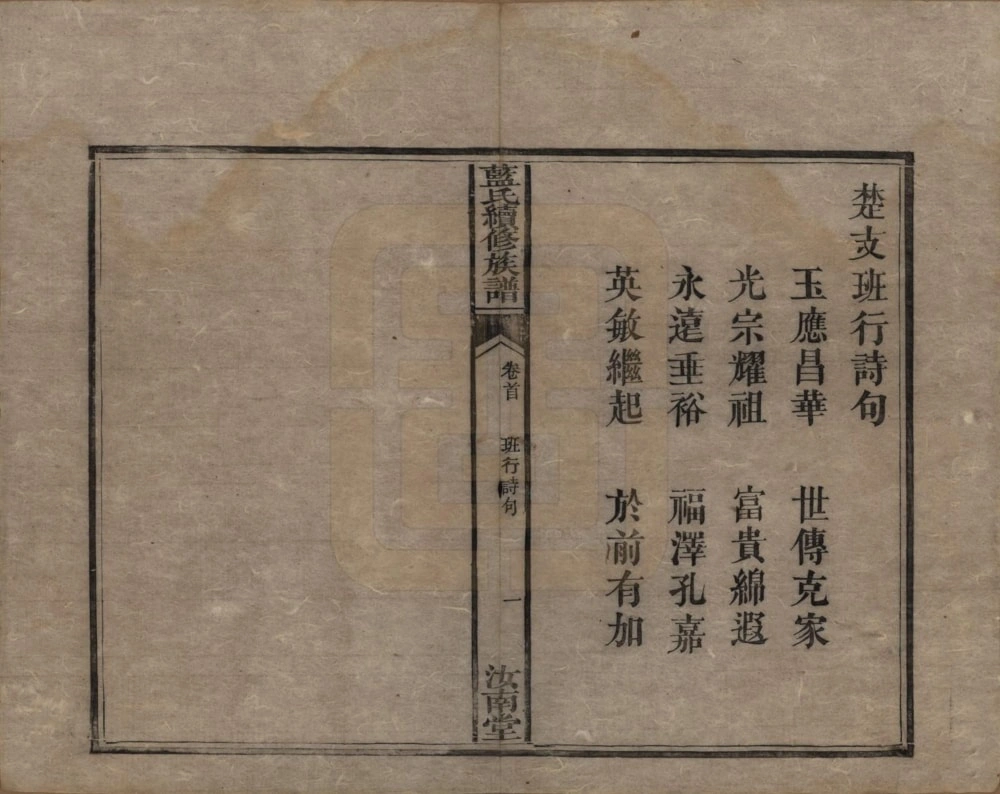 楚支班行詩句
玉應昌華　世傳克家
光宗耀祖　富貴綿遐
永遠垂裕　福澤孔嘉
英敏繼起　於前有加
藍氏續修族譜　卷首　班行詩句　一　汝南堂